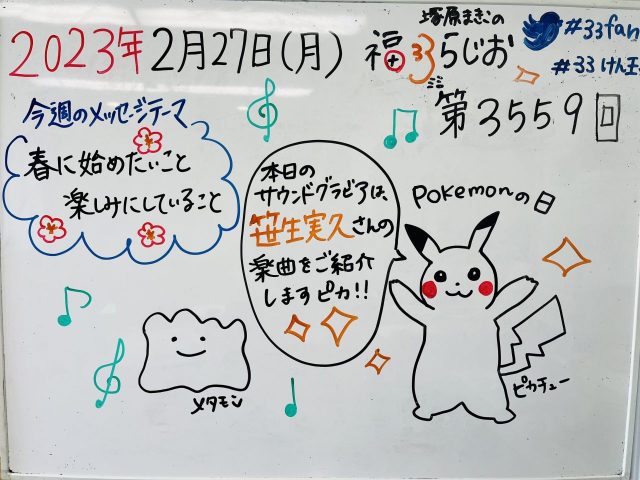 塚原まきこの
2023年2月27日(月) 福33らじお
#33fan
#33けん玉
第3559回
今週のメッセージテーマ
春に始めたいこと
楽しみにしていること
本日の
サウンドグラビアは、
笹生実久さんの
楽曲をご紹介
しますピカ!!
Pokemonの日
メタモン
ピカチュー